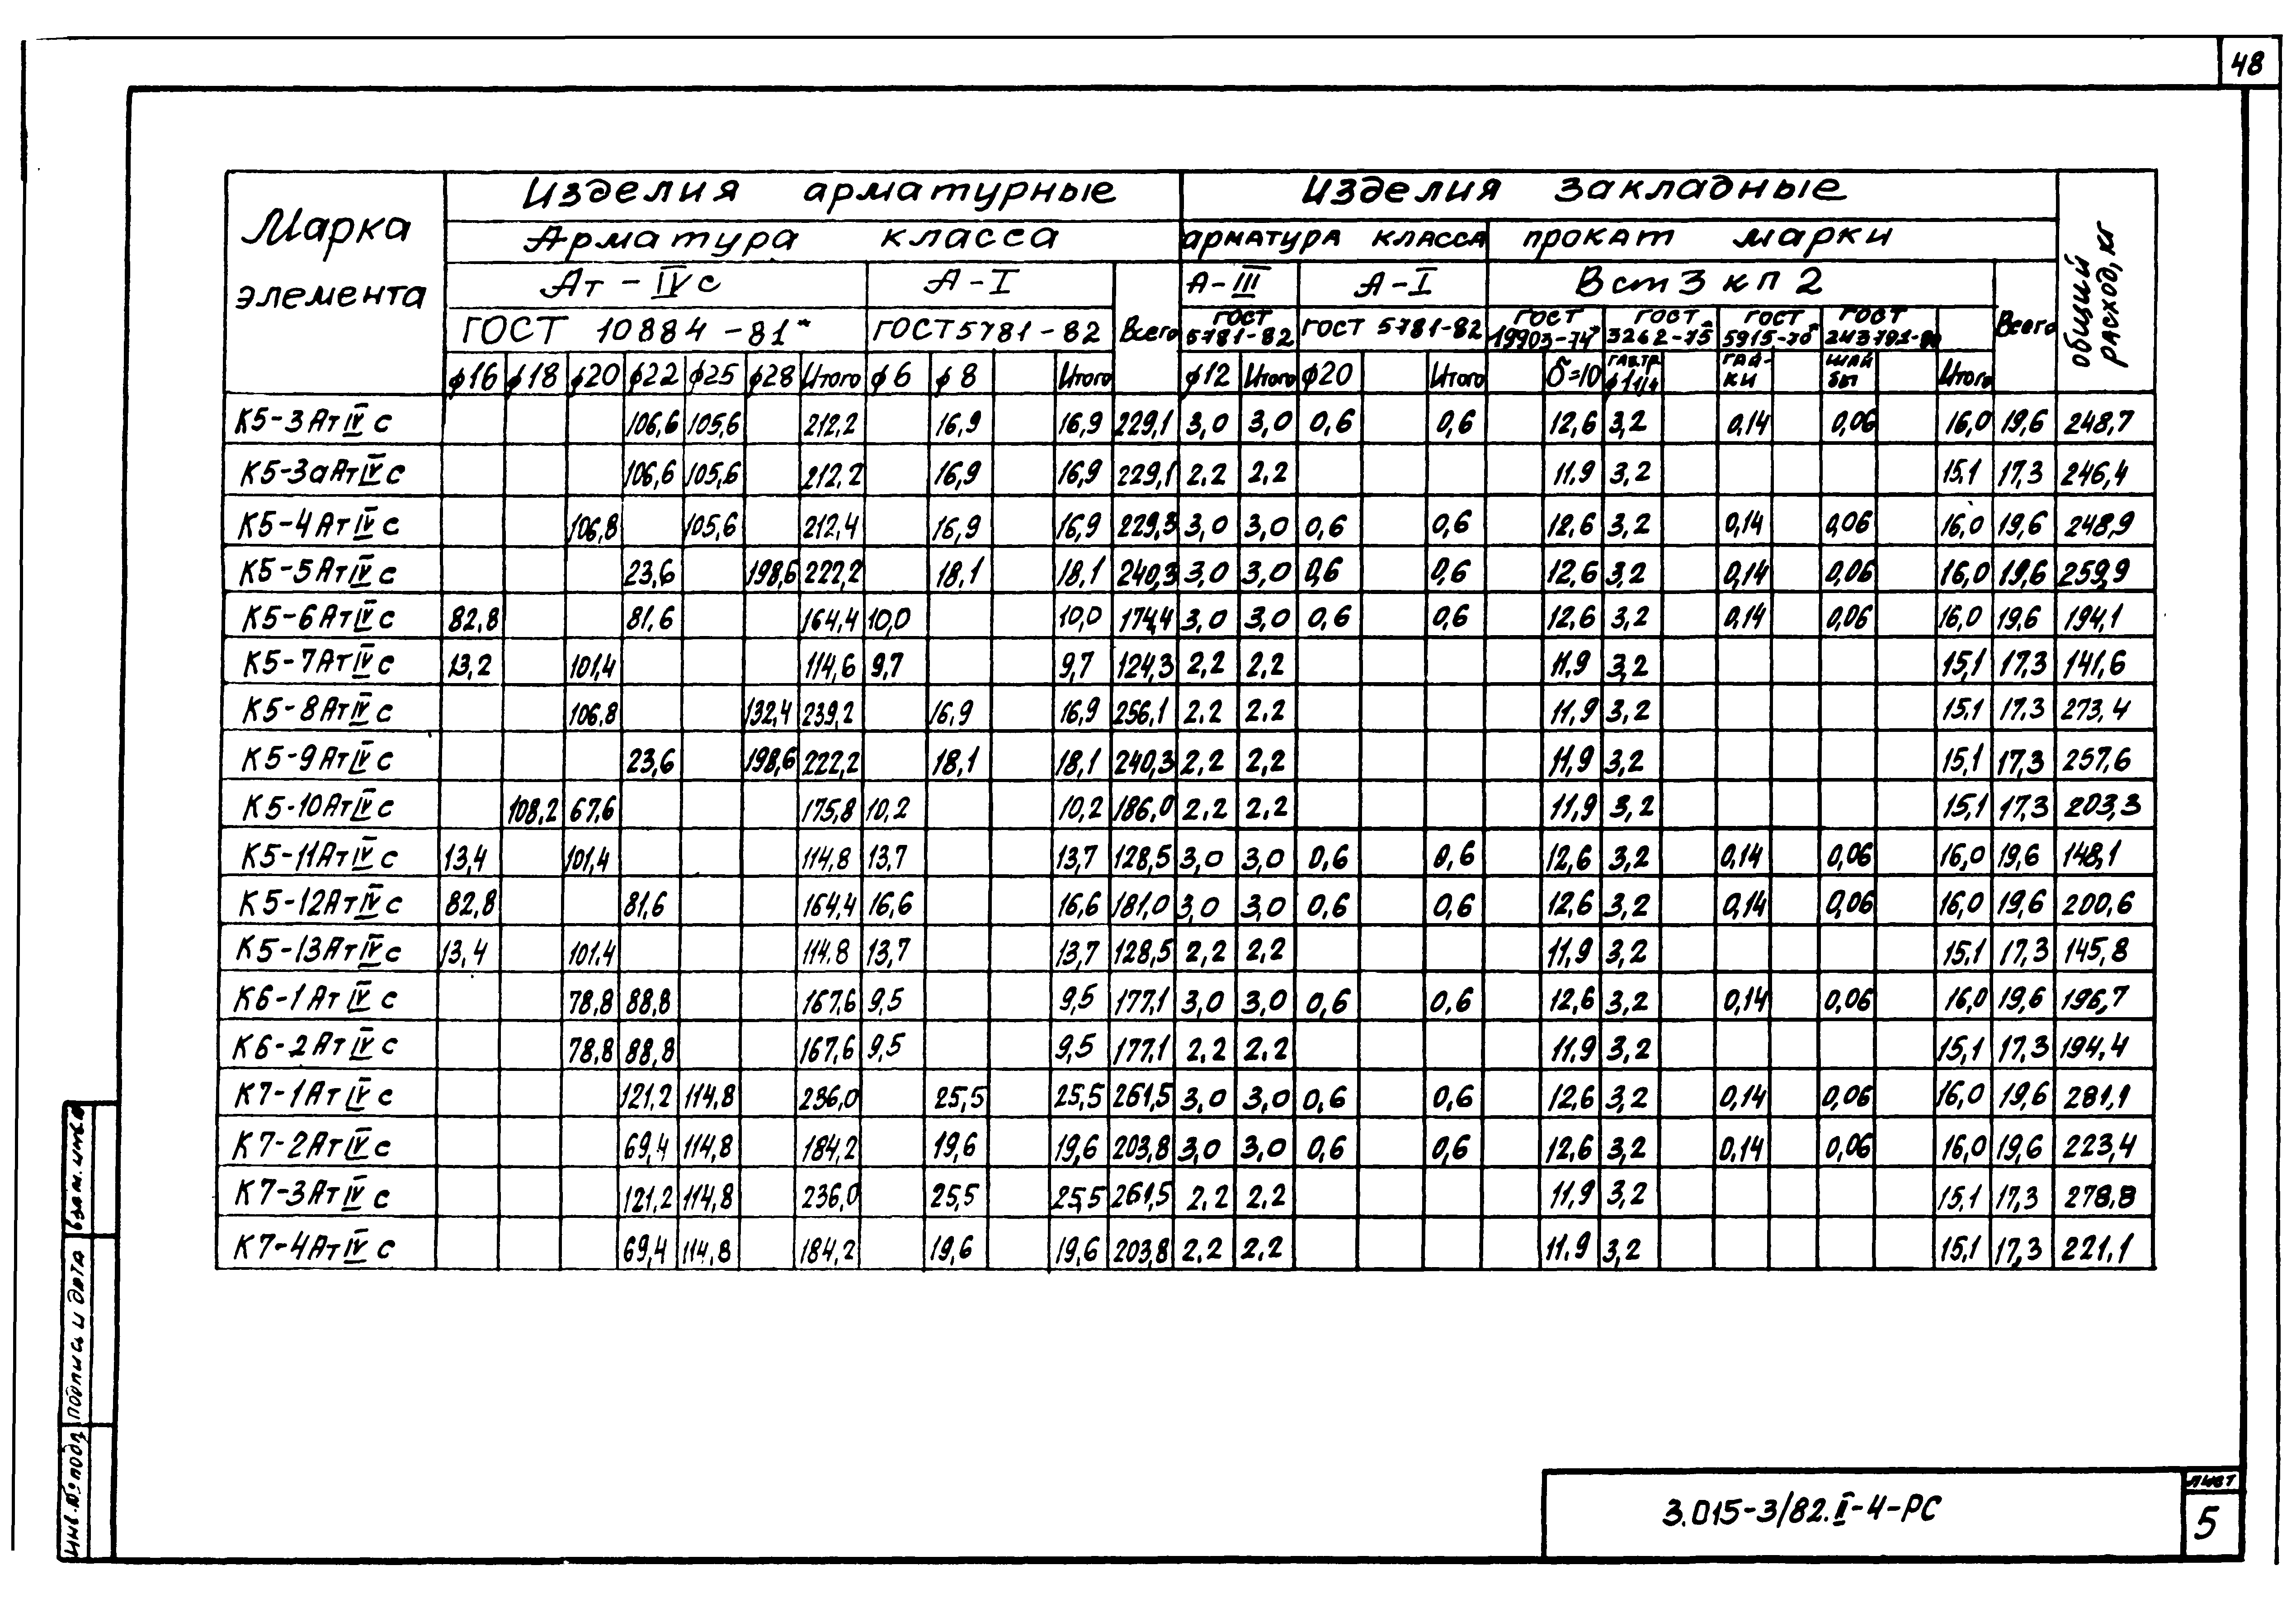 48
Марка элемента
Изделия арматурные
Изделия закладные
общий расход, кг
Арматура класса
арматура класса
прокат марки
Ат-IVс
А-I
Всего
А-III
А-I
Вст3кп2
Всего
ГОСТ 10884-81*
ГОСТ 5781-82
ГОСТ 5781-82
ГОСТ 5781-82
ГОСТ 19903-74*
ГОСТ 3262-75
ГОСТ 5915-70*
ГОСТ
ф16 ф18 ф20 ф22 ф25 ф28 Итого ф6 ф8 Итого ф12 Итого ф20 Итого δ=10 ф1 1/4 гайки шайбы Итого
К5-3АтIVс 106,6 105,6 212,2 16,9 16,9 229,1 3,0 3,0 0,6 0,6 12,6 3,2 0,14 0,06 16,0 19,6 248,7
К5-3аАтIVс 106,6 105,6 212,2 16,9 16,9 229,1 2,2 2,2 11,9 3,2 15,1 17,3 246,4
К5-4АтIVс 106,8 105,6 212,4 16,9 16,9 229,3 3,0 3,0 0,6 0,6 12,6 3,2 0,14 0,06 16,0 19,6 248,9
К5-5АтIVс 23,6 198,6 222,2 18,1 18,1 240,3 3,0 3,0 0,6 0,6 12,6 3,2 0,14 0,06 16,0 19,6 259,9
К5-6АтIVс 82,8 81,6 164,4 10,0 10,0 174,4 3,0 3,0 0,6 0,6 12,6 3,2 0,14 0,06 16,0 19,6 194,1
К5-7АтIVс 13,2 101,4 114,6 9,7 9,7 124,3 2,2 2,2 11,9 3,2 15,1 17,3 141,6
К5-8АтIVс 106,8 132,4 239,2 16,9 16,9 256,1 2,2 2,2 11,9 3,2 15,1 17,3 273,4
К5-9АтIVс 23,6 198,6 222,2 18,1 18,1 240,3 2,2 2,2 11,9 3,2 15,1 17,3 257,6
К5-10АтIVс 108,2 67,6 175,8 10,2 10,2 186,0 2,2 2,2 11,9 3,2 15,1 17,3 203,3
К5-11АтIVс 13,4 101,4 114,8 13,7 13,7 128,5 3,0 3,0 0,6 0,6 12,6 3,2 0,14 0,06 16,0 19,6 148,1
К5-12АтIVс 82,8 81,6 164,4 16,6 16,6 181,0 3,0 3,0 0,6 0,6 12,6 3,2 0,14 0,06 16,0 19,6 200,6
К5-13АтIVс 13,4 101,4 114,8 13,7 13,7 128,5 2,2 2,2 11,9 3,2 15,1 17,3 145,8
К6-1АтIVс 78,8 88,8 167,6 9,5 9,5 177,1 3,0 3,0 0,6 0,6 12,6 3,2 0,14 0,06 16,0 19,6 196,7
К6-2АтIVс 78,8 88,8 167,6 9,5 9,5 177,1 2,2 2,2 11,9 3,2 15,1 17,3 194,4
К7-1АтIVс 121,2 114,8 236,0 25,5 25,5 261,5 3,0 3,0 0,6 0,6 12,6 3,2 0,14 0,06 16,0 19,6 281,1
К7-2АтIVс 69,4 114,8 184,2 19,6 19,6 203,8 3,0 3,0 0,6 0,6 12,6 3,2 0,14 0,06 16,0 19,6 223,4
К7-3АтIVс 121,2 114,8 236,0 25,5 25,5 261,5 2,2 2,2 11,9 3,2 15,1 17,3 278,8
К7-4АтIVс 69,4 114,8 184,2 19,6 19,6 203,8 2,2 2,2 11,9 3,2 15,1 17,3 221,1
Взам. инв. №
Подпись и дата
Инв. № подл.
3.015-3/82.II-4-РС
лист
5